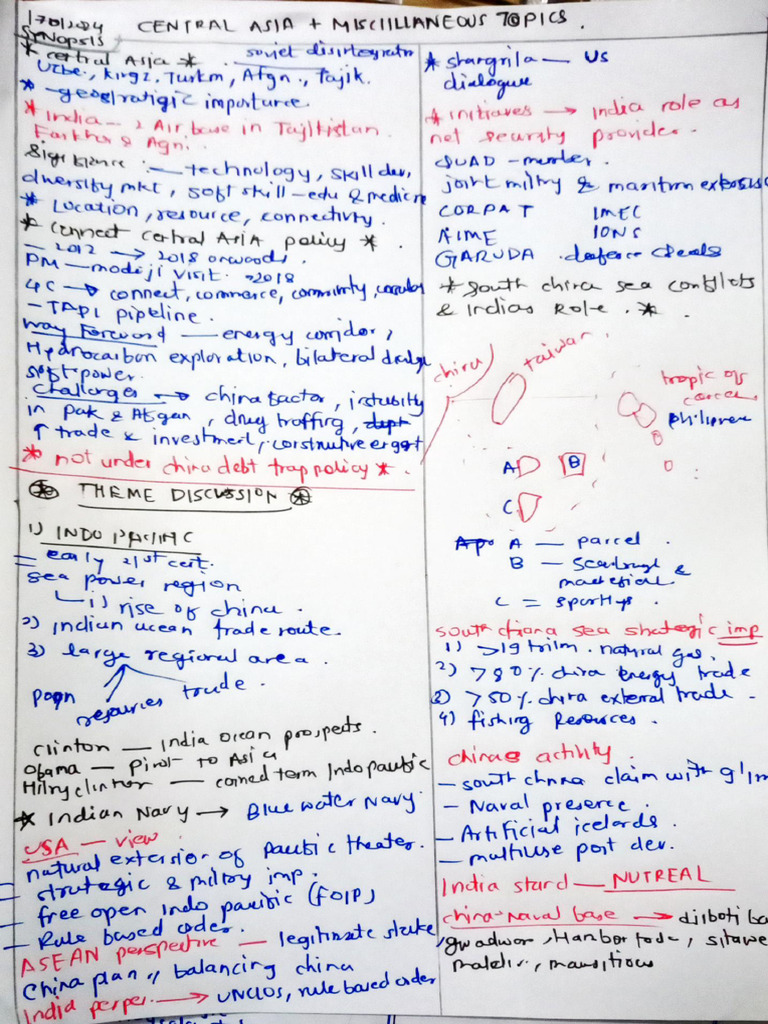 17/01/2024 CENTRAL ASIA + MISCIILLANEOUS TOPICS.
SYNOPSIS
* central Asia * . soviet disintegratn
Uzbe., Kirgz, Turkm, Afgn., Tajik.
* - geostratigic importance.
* India - 2 Air base in Tajikistan.
Farkhor & Agni.
Significance :- technology, skill dev,
diversify mkt, soft skill - edu & medicine
* Location, resource, connectivity.
* connect central Asia policy * .
- 2012 → 2018 onwoods.
PM - modiji visit. →2018
4C → connect, commerce, community,
- TAPI pipeline.
way Forward - energy corridor,
Hydrocarbon exploration, bilateral
soft power.
Challenges → china factor, instability
in pak & Afgan, drug traffing,
↑ trade & investment, constructive
* not under china debt trap policy * .
* THEME DISCUSSION *
1) INDO PACIFIC
= early 21st cert.
sea power region
↳ 1) rise of china.
2) indian ocean trade route.
3) large regional area.
popn resources trade.
Clinton - India Ocean prospects.
Obama - Pivot to Asia
Hilry clinton - coined term Indo pacific
* Indian Navy → Blue water Navy.
USA - view
natural extersion of Pacific theater.
= strategic & miltory imp.
- free open Indo pacific (FOIP)
- Rule based order.
ASEAN perspective - legitimate stake
China plan, balancing china
India perper. → UNCLOS, rule based order
* shangrila - US
dialogue
* initiaves → india role as
net security provider.
QUAD - member.
joint miltry & maritim
CORPAT IMEC
AIME IONS
GARUDA .defence deals
* south china sea conflicts
& Indias Role. * .
china
taiwan
tropic of
cancer
philipene
A
B
C
A - parcel.
B -
C =
south chana sea strategic imp
1) >19 trilm. natural gas.
2) >80% china energy trade
3) >50% china external trade.
4) fishing Resources.
chinas activity.
- south chnna claim with 9
- Naval presence.
- Artificial icelords.
- multiuse port dev.
India stand - NUTREAL
china Naval base → djiboti
gwadwar, Hanbortode, sitawe